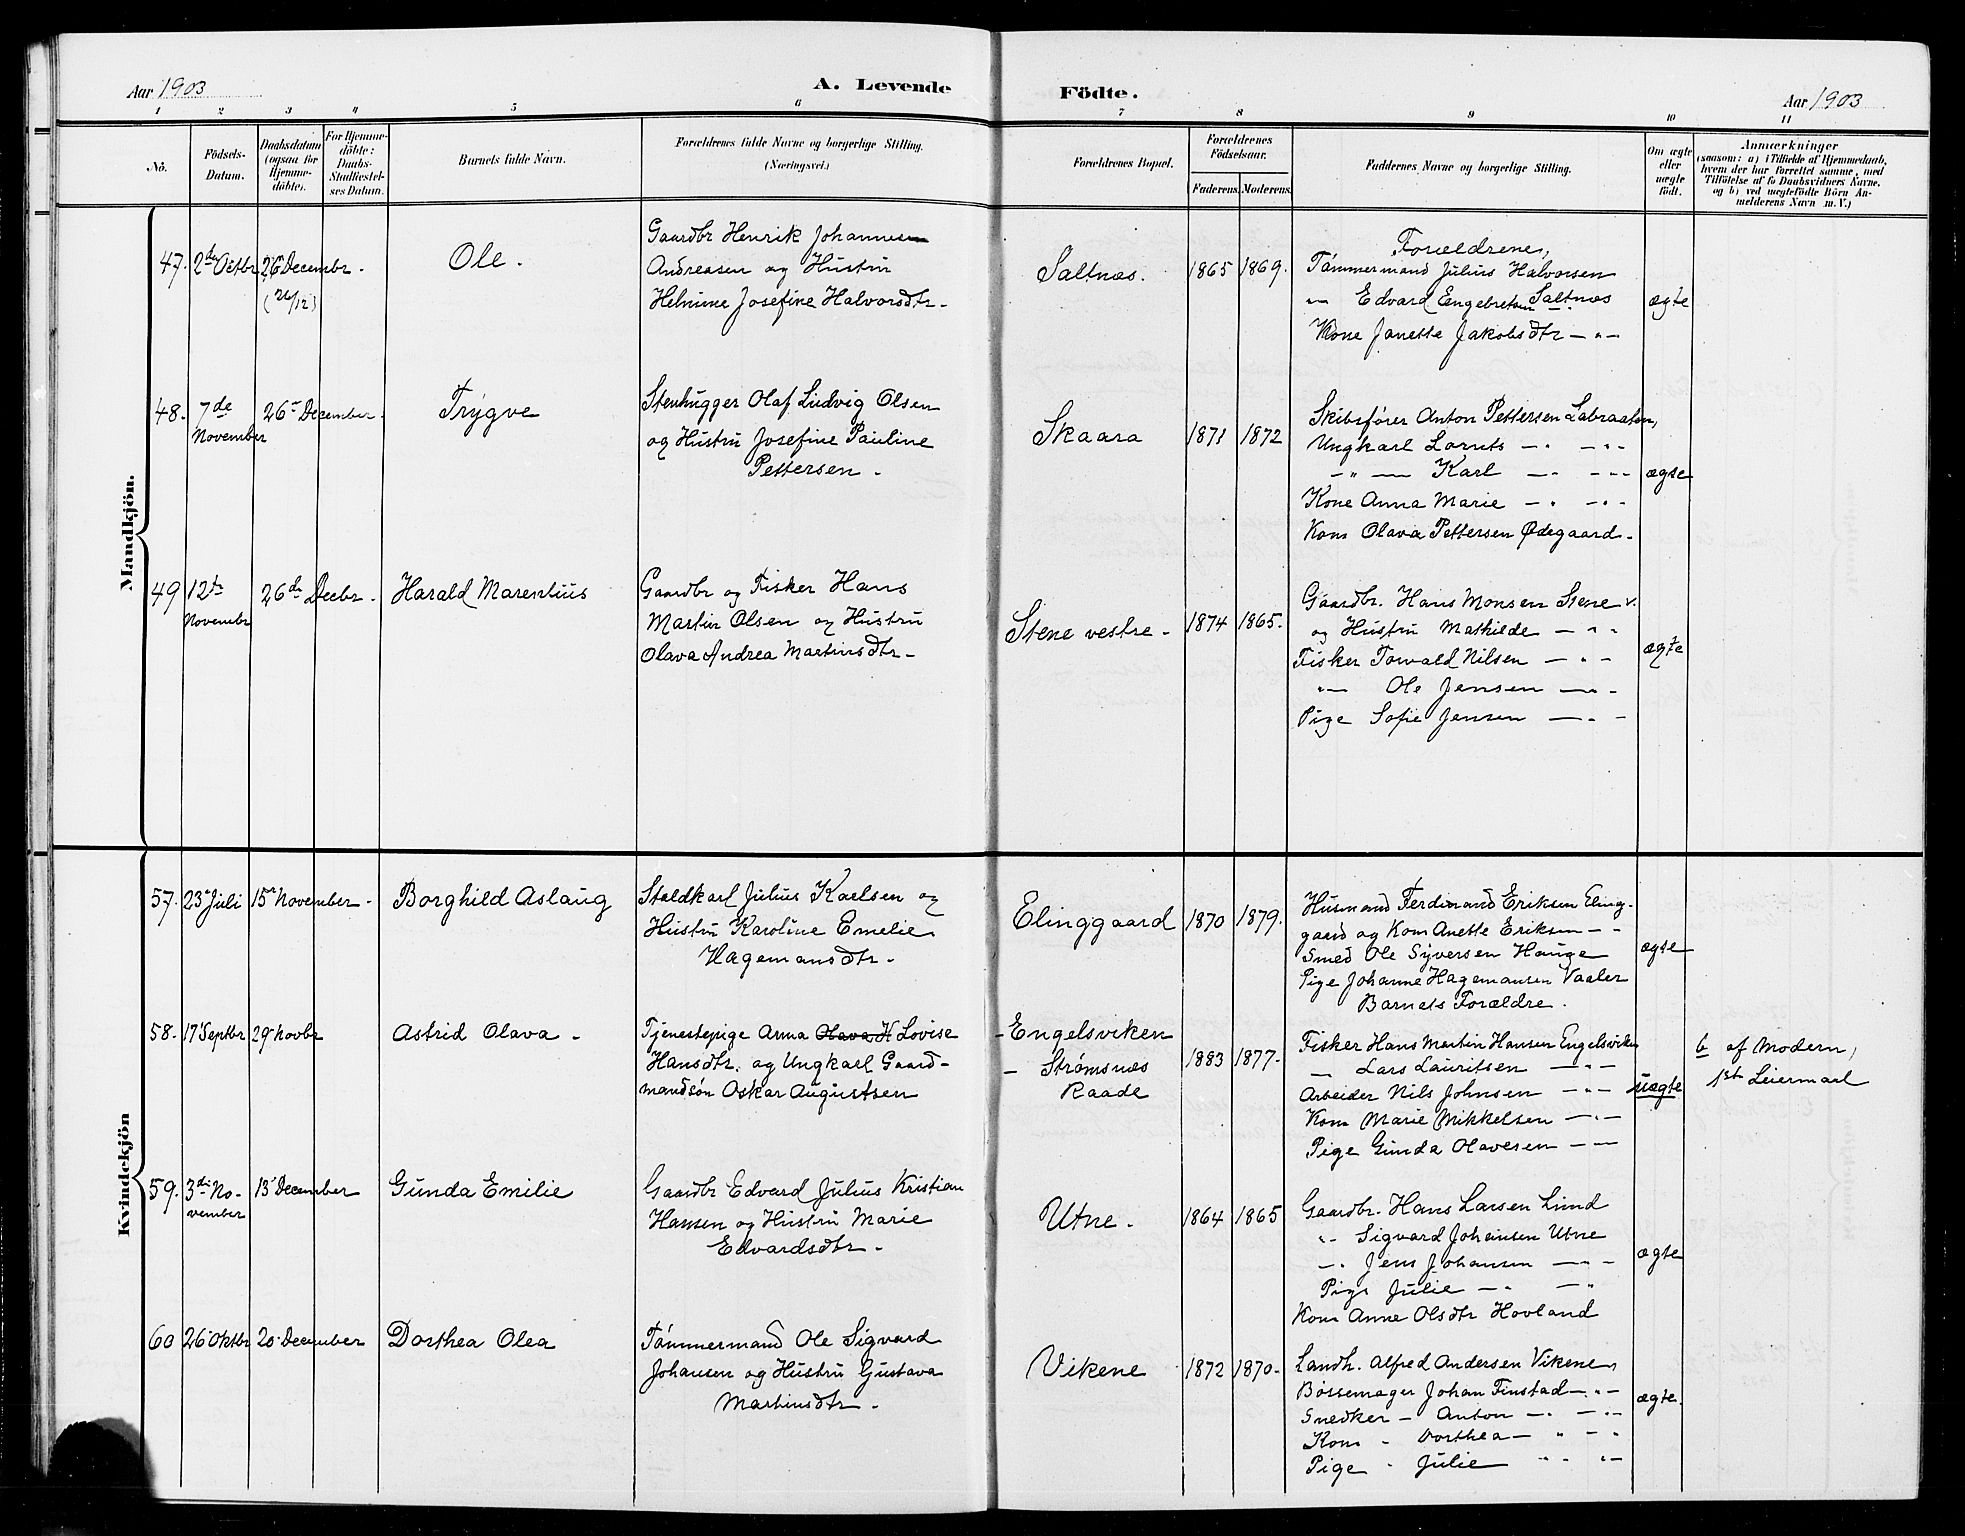 Aar 1903
A. Levende
Födte.
Aar 1903
1 2 3 4 5 6 7 8 9 10 11
No.
Födsels-
Datum.
Daabsdatum
(ogsaa for
Hjemme-
döbte).
For Hjemme-
döbte:
Daabs-
Stadfæstel-
ses Datum.
Barnets fulde Navn.
Forældrenes fulde Navne og borgerlige Stilling.
(Næringsvei.)
Forældrenes Bopæl.
Forældrenes
Födselsaar.
Faderens. Moderens.
Faddernes Navne og borgerlige Stilling.
Om ægte
eller
uægte
födt.
Anmærkninger
(saasom: a) i Tilfælde af Hjemmedaab,
hvem der har forrettet samme, med
Tilföielse af to Daabsvidners Navne,
og b) ved uægtefödte Börn An-
melderens Navn m. V.)
Mandkjön.
47. 2den Octbr. 26 December.
(26/12)
Ole.
Gaardbr Henrik Johannesen
Andreasen og Hustru
Helmine Josefine Halvorsdtr.
Saltnæs.
1865 1869.
Forældrene,
Tømmermand Julius Halvorsen
—"— Edvard Engebretsen Saltnæs
Kone Janette Jakobsdtr — " —
ægte
48. 7de
November
26 December.
Trygve
Stenhugger Olaf Ludvig Olsen
og Hustru Josefine Pauline
Pettersen.
Skaara
1871 1872
Skibsfører Anton Pettersen Labraaten,
Ungkarl Lornts — " — " —
— " — Karl — " — " —
Kone Anna Marie — " — " —
Kone Olava Pettersen Ødegaard.
ægte
49 12te
Novembr
26de Decbr.
Harald Marentius
Gaardbr og Fisker Hans
Martin Olsen og Hustru
Olava Andrea Martinsdtr.
Stene vestre.
1874 1865.
Gaardbr. Hans Monsen Stene v.
og Hustru Mathilde — " —
Fisker Torvald Nilsen — " —
— " — Ole Jensen — " —
Pige Sofie Jensen — " —
ægte
Kvindekjön
57. 23 Juli 15 November.
Borghild Aslaug
Staldkarl Julius Karlsen og
Hustru Karoline Emelie
Hagemansdtr.
Elinggaard
1870 1879.
Husmand Ferdinand Eriksen Eling-
gaard og Kone Anette Eriksen — " —
Smed Ole Syversen Hauge
Pige Johanne Hagemansen Vaaler
Barnets Forældre.
ægte
58. 17 Septbr 29 Novbr
Astrid Olava.
Tjenestepige Anna Olava H Lovise
Hansdtr. og Ungkarl Gaard-
mandsøn Oskar Augustsen
Engelsviken
Strømsnæs
Raade
1883 1877.
Fisker Hans Martin Hansen Engelsviken
— Lars Lauritsen — " —
Arbeider Nils Johnsen — " —
Kone Marie Mikkelsen — " —
Pige Gunda Olavesen — " —
uægte
b af Modern,
1st Leiermaal
59. 3die No-
vember
13 December
Gunda Emilie
Gaardbr Edvard Julius Kristian
Hansen og Hustru Marie
Edvardsdtr.
Utne.
1864 1865
Gaardbr. Hans Larsen Lund
— " — Sigvard Johansen Utne
— " — Jens Johansen — " —
Pige Julie — " — " —
Kone Anne Olsdtr Hovland
ægte
60 26 Oktbr 20 December
Dorthea Olea
Tømmermand Ole Sigvard
Johansen og Hustru Gustava
Martinsdtr.
Vikene
1872 1870.
Landh. Alfred Andersen Vikene,
Bøssemager Johan Finstad — " —
Snedker — Anton — " — " —
Kone " Dorthea — " — " —
Pige " Julie — " — " —
ægte.